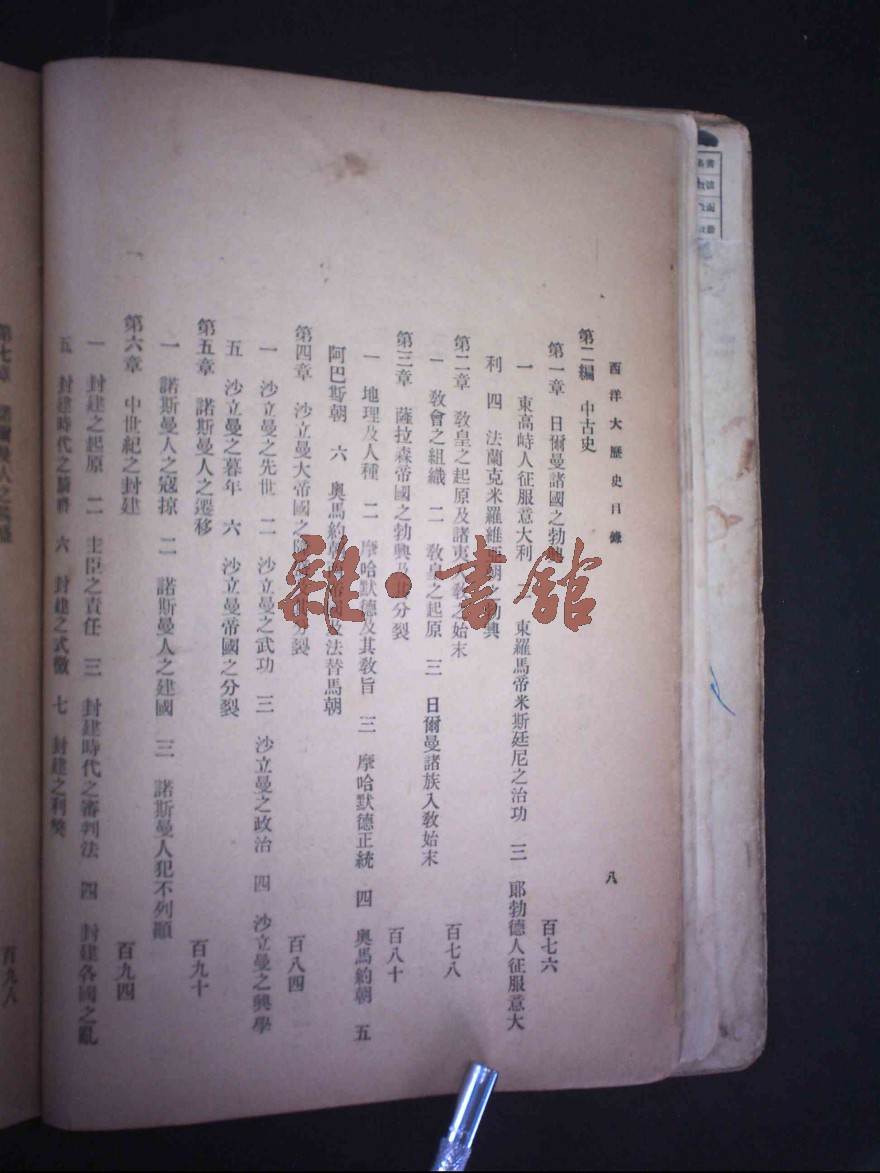 西洋大歷史目錄
八
第二編 中古史
第一章 日爾曼諸國之勃 百七六
一 東高峙人征服意大利 東羅馬帝米斯廷尼之治功 三 郞勃德人征服意大
利 四 法蘭克米羅維 朝之勃興
第二章 敎皇之起原及諸夷入敎之始末 百七八
一 敎會之組織 二 敎皇之起原 三 日爾曼諸族入敎始末
第三章 薩拉森帝國之勃興及其分裂 百八十
一 地理及人種 二 摩哈默德及其敎旨 三 摩哈默德正統 四 奧馬約朝 五
阿巴斯朝 六 奧馬約朝 法替馬朝
第四章 沙立曼大帝國之 分裂 百八四
一 沙立曼之先世 二 沙立曼之武功 三 沙立曼之政治 四 沙立曼之興學
五 沙立曼之暮年 六 沙立曼帝國之分裂
第五章 諾斯曼人之遷移 百九十
一 諾斯曼人之寇掠 二 諾斯曼人之建國 三 諾斯曼人犯不列顚
第六章 中世紀之封建 百九四
一 封建之起原 二 主臣之責任 三 封建時代之審判法 四 封建各國之亂
五 封建時代之 六 封建之式微 七 封建之利弊
第七章 人之 百九八
雜·書館